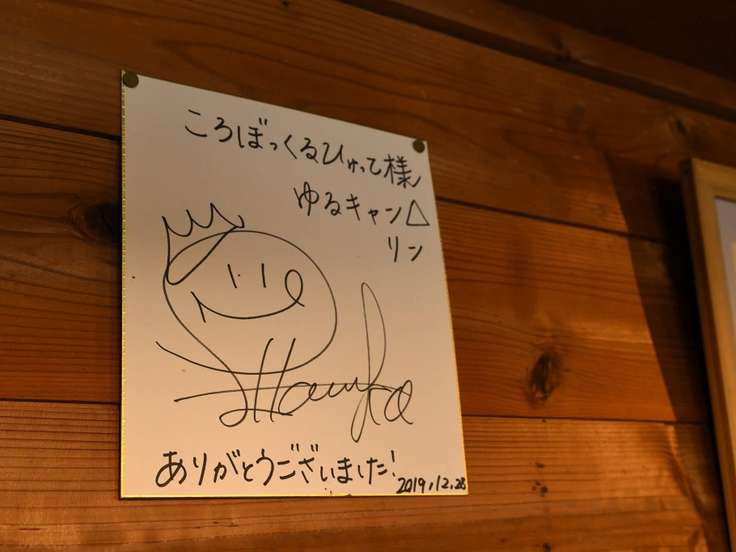 ころぼっくるひゅって様
ゆるキャン△
リン
Haruka
ありがとうございました!
2019.12.28